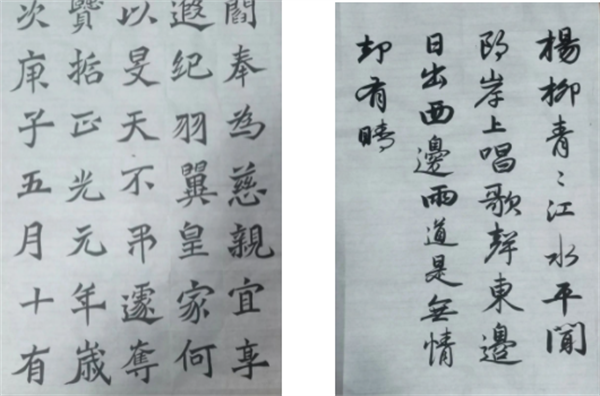 閻奉為慈親宜享
遐紀羽翼皇家何
以旻天不弔遽奪
賢哲正光元年歲
次庚子五月十有
楊柳青〻江水平聞
郎岸上唱歌聲東邊
日出西邊雨道是無情
却有晴